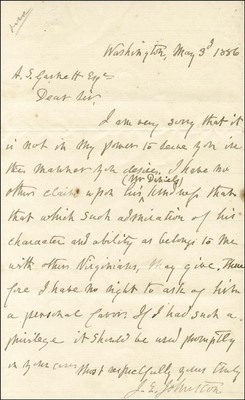 Washington, May 3d 1886
A. S. Garnett Esqr
Dear Sir,
I am very sorry that it
is not in my power to serve you in
the manner you desire. I have no
Mr Daniel's
other claim upon his kindness than
that which such admiration of his
character and ability as belongs to me
with other Virginians, may give. There
fore I have no right to ask of him
a personal favor. If I had such a
privilege it should be used promptly
in your case
Most respectfully yours truly
J. E. Johnston